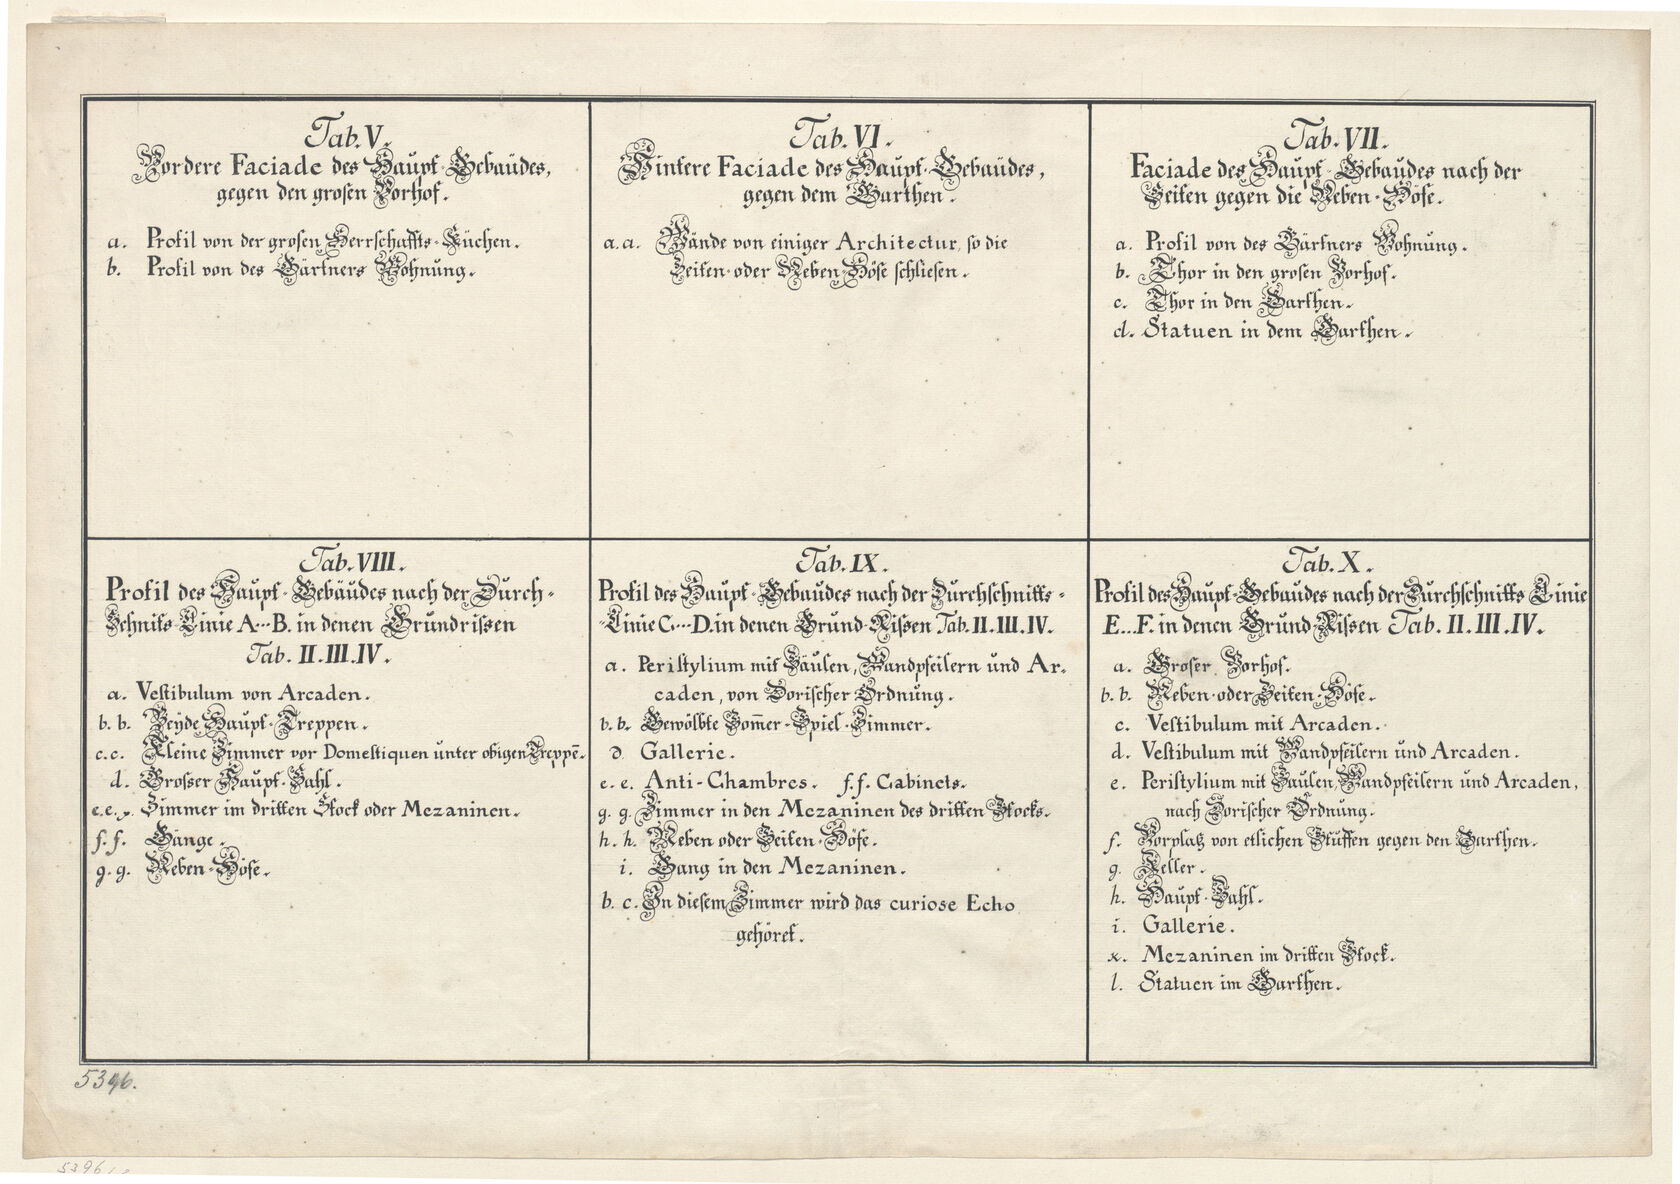 Tab. V.
Vordere Faciade des Haupt-Gebaüdes,
gegen den grosen Vorhof.
a. Profil von der grosen Herrschaffts-Küchen.
b. Profil von des Gärtners Wohnüng.
Tab. VI.
Hintere Faciade des Haupt-Gebaüdes,
gegen dem Garthen.
a.a. Wände von einiger Architectur, so die
Seiten-oder Neben-Höfe schliesen.
Tab. VII.
Faciade des Haupt-Gebaüdes nach der
Seiten gegen die Neben-Höfe.
a. Profil von des Gärtners Wohnüng.
b. Thor in den grosen Vorhof.
c. Thor in den Garthen.
d. Statuen in dem Garthen.
Tab. VIII.
Profil des Haüpt-Gebäüdes nach der Dürch-
Schnits-Linie A...B. in denen Gründrissen
Tab. II. III. IV.
a. Vestibulum von Arcaden.
b. b. Beyde Haüpt-Treppen.
c. c. Kleine Zimmer vor Domestiquen ünter obigen Treppē.
d. Grosser Haüpt-Sahl.
e. e. Zimmer im dritten Stock oder Mezaninen.
f. f. Gänge.
g. g. Neben-Höfe.
Tab. IX.
Profil des Haüpt-Gebaüdes nach der Dürchschnitts-
Linie C....D. in denen Gründ-Rissen Tab. II. III. IV.
a. Peristylium mit Säülen, Wandpfeilern ünd Ar-
caden, von Dorischer Ordnüng.
b. b. Gewölbte Som̄er-Spiel-Zimmer.
d Gallerie.
e. e. Anti-Chambres. f. f. Cabinets.
g. g. Zimmer in den Mezaninen des dritten Stocks.
h. h. Neben oder Seiten-Höfe.
i. Gang in den Mezaninen.
b. c. In diesem Zimmer wird das curiose Echo
gehöret.
Tab. X.
Profil des Haüpt-Gebaudes nach der Dürchschnitts Linie
E...F. in denen Gründ-Rissen Tab. II. III. IV.
a. Groser Vorhof.
b. b. Neben-oder Seiten-Höfe.
c. Vestibulum mit Arcaden.
d. Vestibulum mit Wandpfeilern ünd Arcaden.
e. Peristylium mit Saülen, Wandpfeilern ünd Arcaden,
nach Dorischer Ordnüng.
f. Vorplatz von etlichen Stüffen gegen den Garthen.
g. Keller.
h. Haüpt-Sahl.
i. Gallerie.
k. Mezaninen im dritten Stock.
l. Statuen im Garthen.
5396.